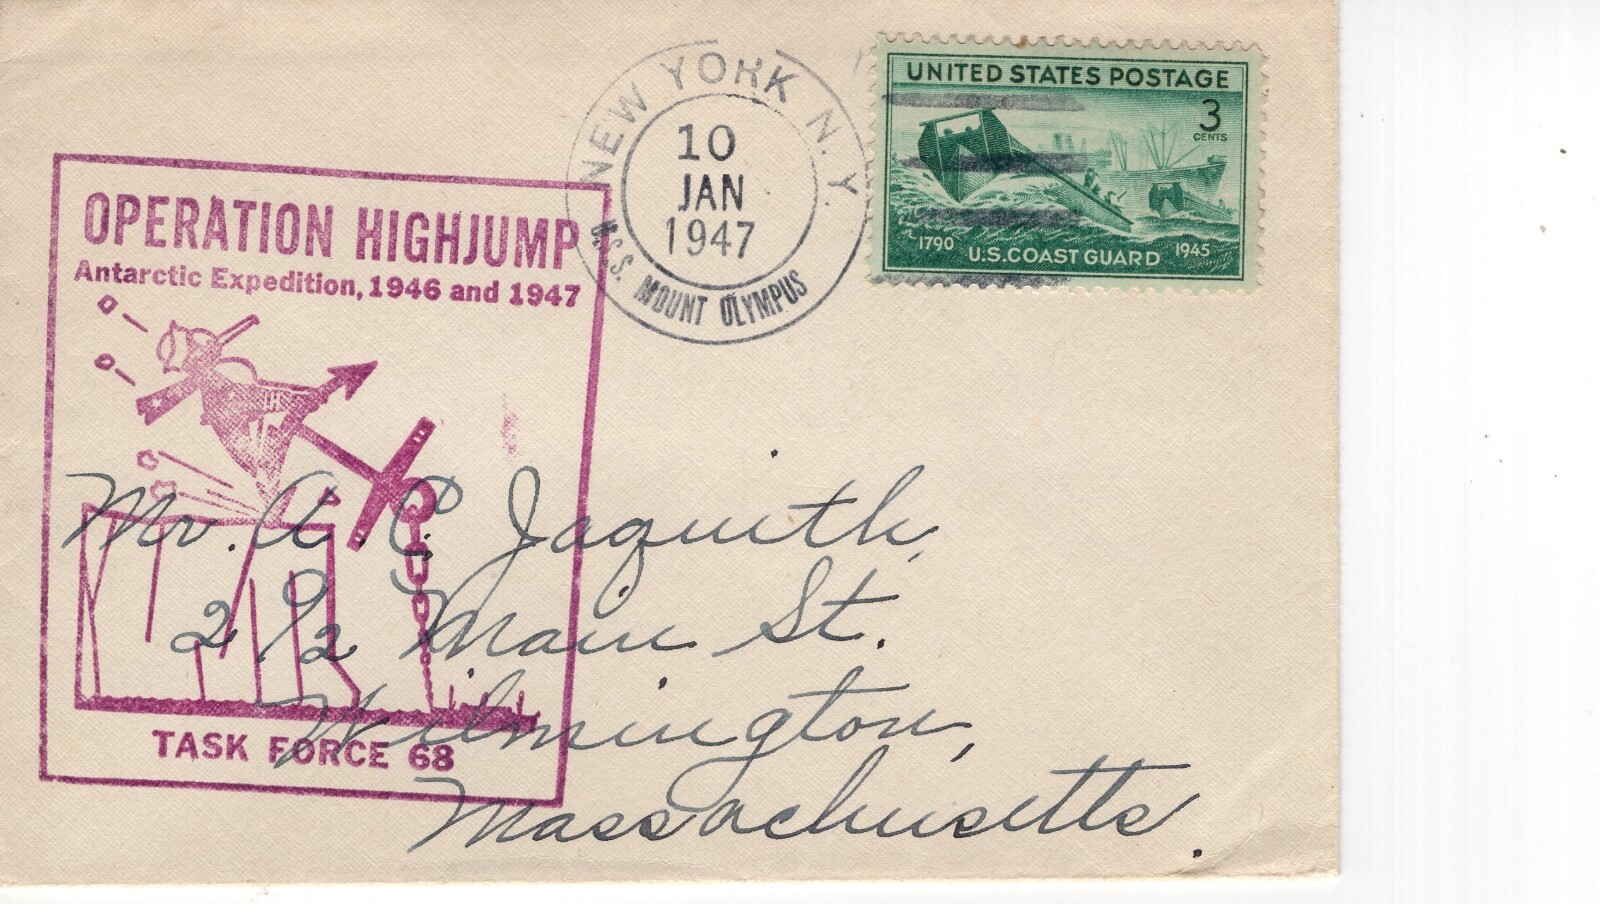 OPERATION HIGHJUMP
Antarctic Expedition, 1946 and 1947
TASK FORCE 68
NEW YORK N.Y.
10
JAN
1947
U.S.S. MOUNT OLYMPUS
UNITED STATES POSTAGE
3
CENTS
1790 U.S. COAST GUARD 1945
Mr. A. C. Jaquith,
292 Main St.
Wilmington,
Massachusetts.